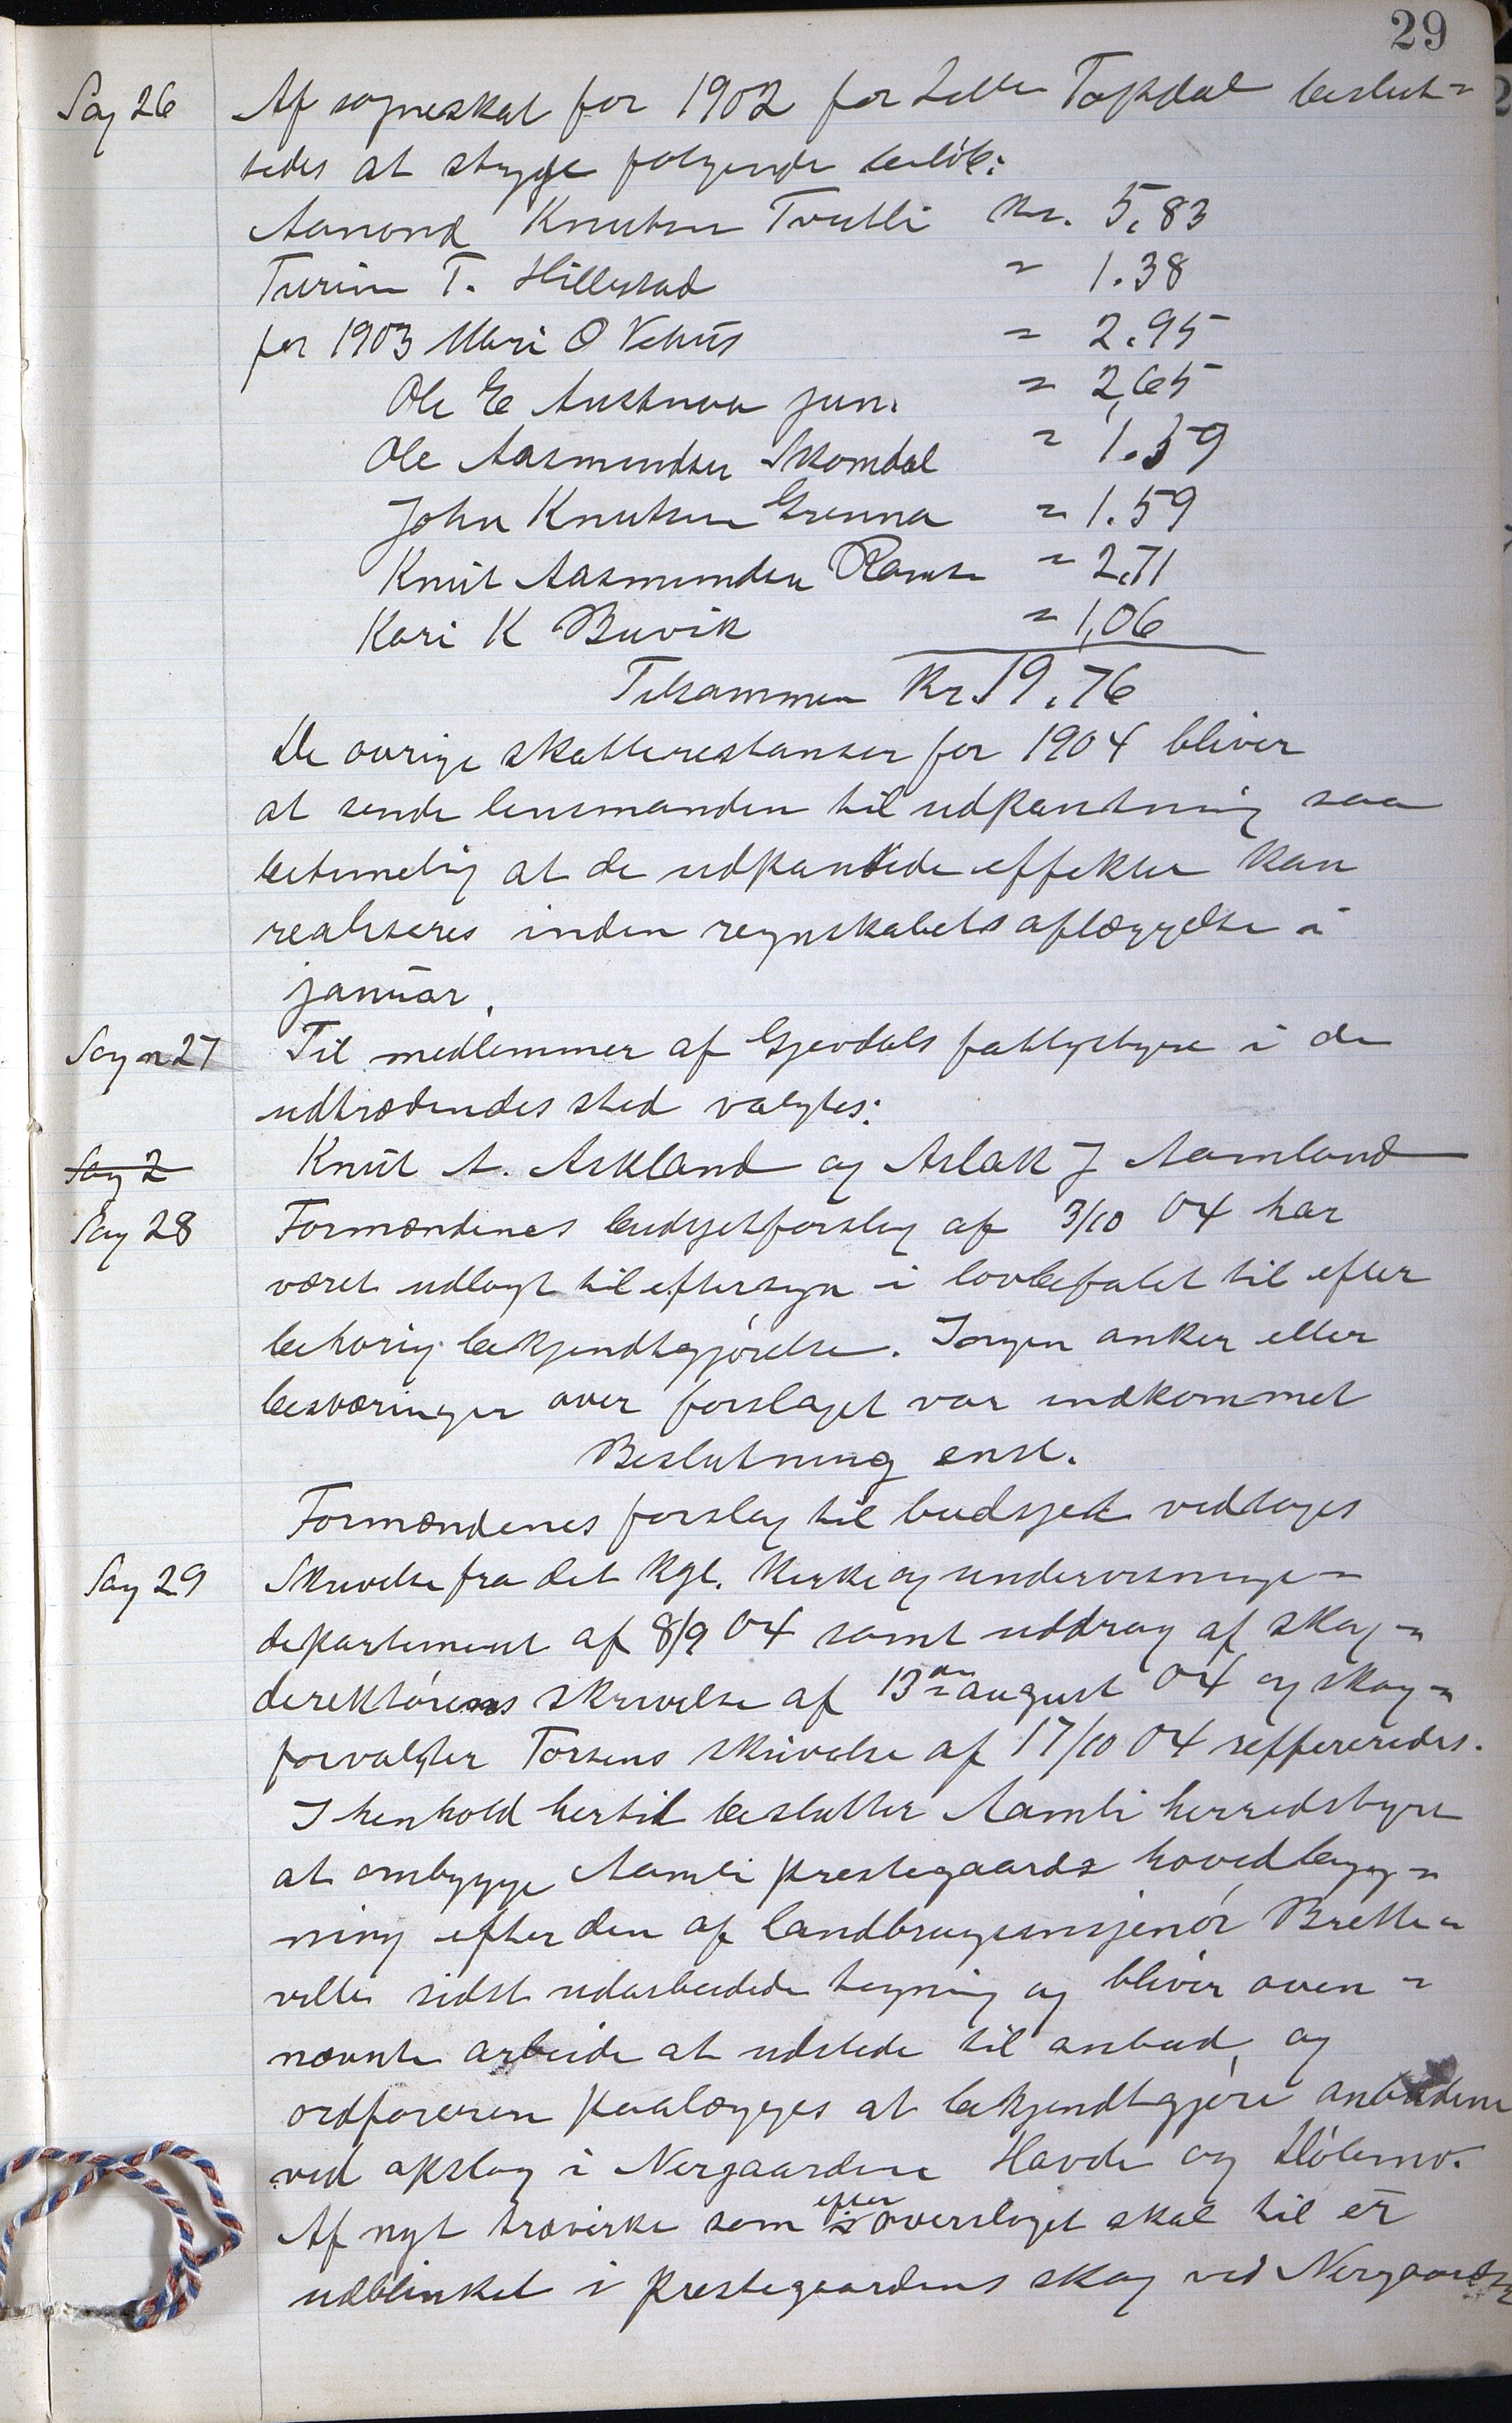 29
Sag 26 Af sogneskat for 1902 for Lille Topdal beslut=
tedes at stryge følgende beløb:
Aanond Knutsen Tveitli Kr. 5,83
Turine T. Hillestad " 1.38
for 1903 Mari O Vehus " 2.95
Ole E Austnaa jun. " 2,65
Ole Aasmundsen Skomdal " 1.59
John Knutsen Grenna " 1.59
Knut Aasmundsen Ramse " 2,71
Kari K Buvik " 1,06
Tilsammen Kr. 19,76
De øvrige skatterestanser for 1904 bliver
at sende lensmanden til udpantning saa
betimelig at de udpantede effekter kan
realiseres inden regnskabets aflæggelse i
januar.
Sag n 27 Til medlemmer af Gjevdals fattigstyre i de
udtrædendes sted valgtes:
Sag 2 Knut A. Askland og Aslak J Aamland
Sag 28 Formændenes budsjetforslag af 3/10 04 har
været udlagt til eftersyn i lovbefalet tid efter
behørig bekjendtgjørelse. Ingen anker eller
besværinger over forslaget var indkommet
Beslutning enst.
Formændenes forslag til budsjett vedtages
Sag 29 Skrivelse fra det kgl. Kirke og undervisnings=
departement af 8/9 04 samt uddrag af skog=
derektørens skrivelse af 13de august 04 og skog=
forvalter Torsens skrivelse af 17/10 04 reffereredes.
I henhold hertil beslutter Aamli herredstyre
at ombygge Aamli prestegaards hovedbyg=
ning efter den af landbrugsinsjenør Brette=
ville sidst udarbeidede tegning og bliver oven=
nævnte arbeide at udstede til anbud, og
ordføreren paalægges at bekjendtgjøre anbudene
ved opslag i Nergaardene Havde og Dølemo.
Af nyt trævirke som efter overslaget skal til er
udblinket i prestegaardens skog ved Nergaards